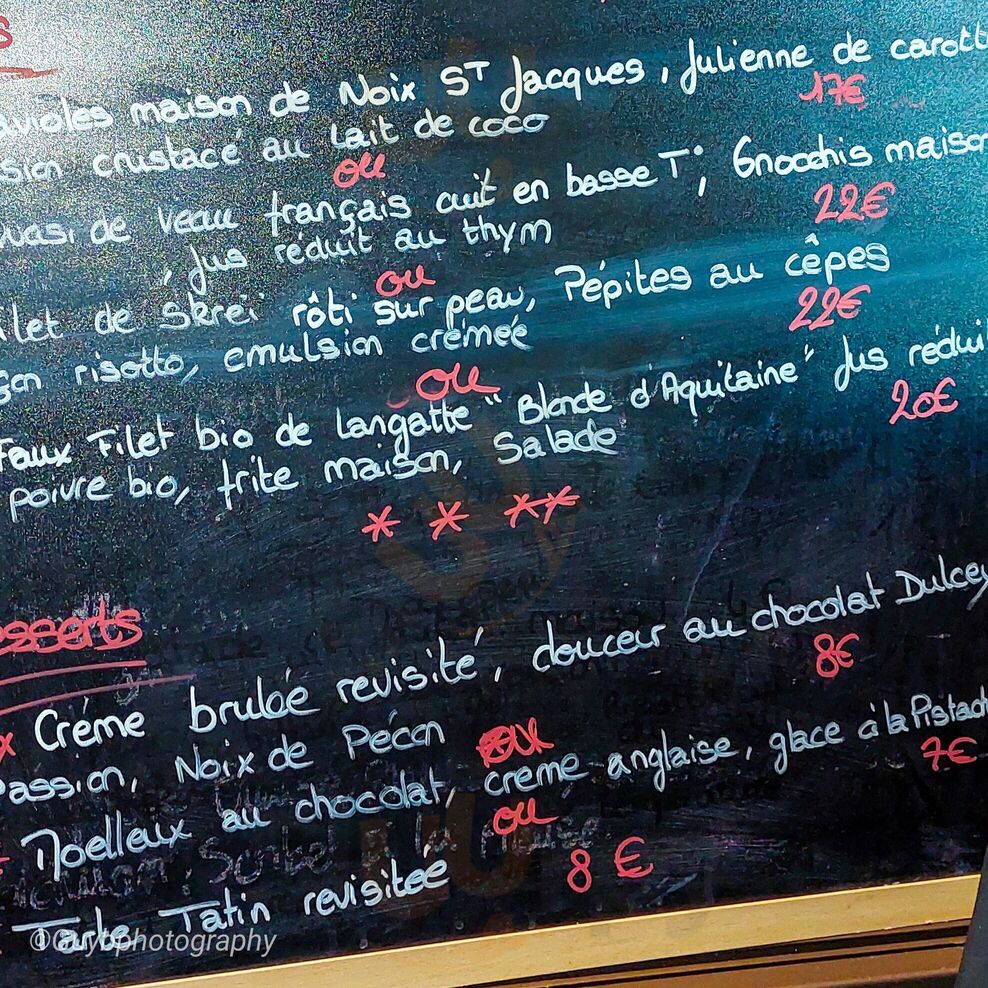 s
avioles maison de Noix ST Jacques, Julienne de carott
17€
sion crustacé au lait de coco
ou
uasi de veau français cuit en basse T°, Gnocchis maison
22€
, Jus réduit au thym
ou
ilet de Skreï rôti sur peau, Pépites au cêpes
22€
çon risotto, emulsion crémeé
ou
Faux Filet bio de Langatte "Blonde d'Aquitaine" Jus rédui
20€
poivre bio, frite maison, Salade
* * **
esserts
x Crème bruleé revisité, douceur au chocolat Dulcey
8€
Passion, Noix de Pécan oux
Moelleux au chocolat, creme anglaise, glace à la Pistach
7€
ou
Sorbet à la
Tarte Tatin revisiteé 8 €
©Guybphotography